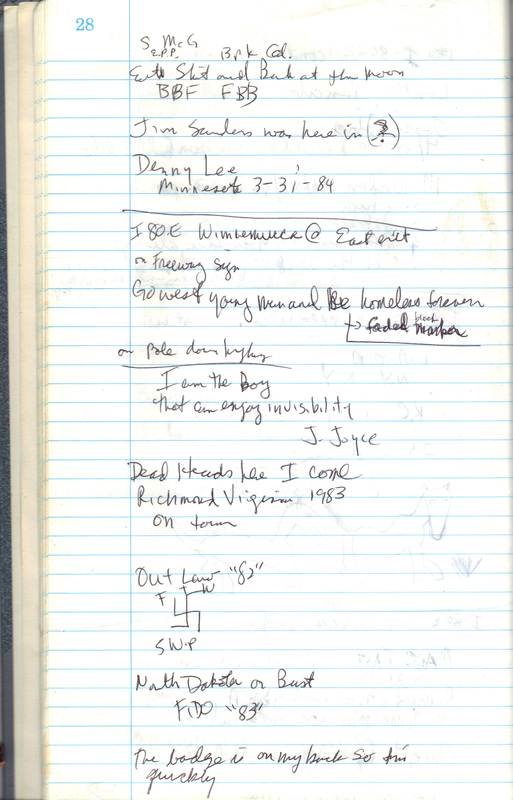 28
S. McG
E.P.P. Brk Col.
Eat Shit and Bark at the Moon
BBF FBB
Jim Sanders was here in (?)
Denny Lee
Minnesota 3-31-84
I 80 E Winnemucca @ East exit
on Freeway Sign
Go west young man and Be homeless forever
→ faded black marker
on pole down hyway
I am the Boy
that can enjoy invisibility
J. Joyce
Dead Heads here I come
Richmond Virginia 1983
on tour
Out Law "82"
F W
S W.P
North Dakota or Bust
FIDO "83"
the badge is on my back so
quickly